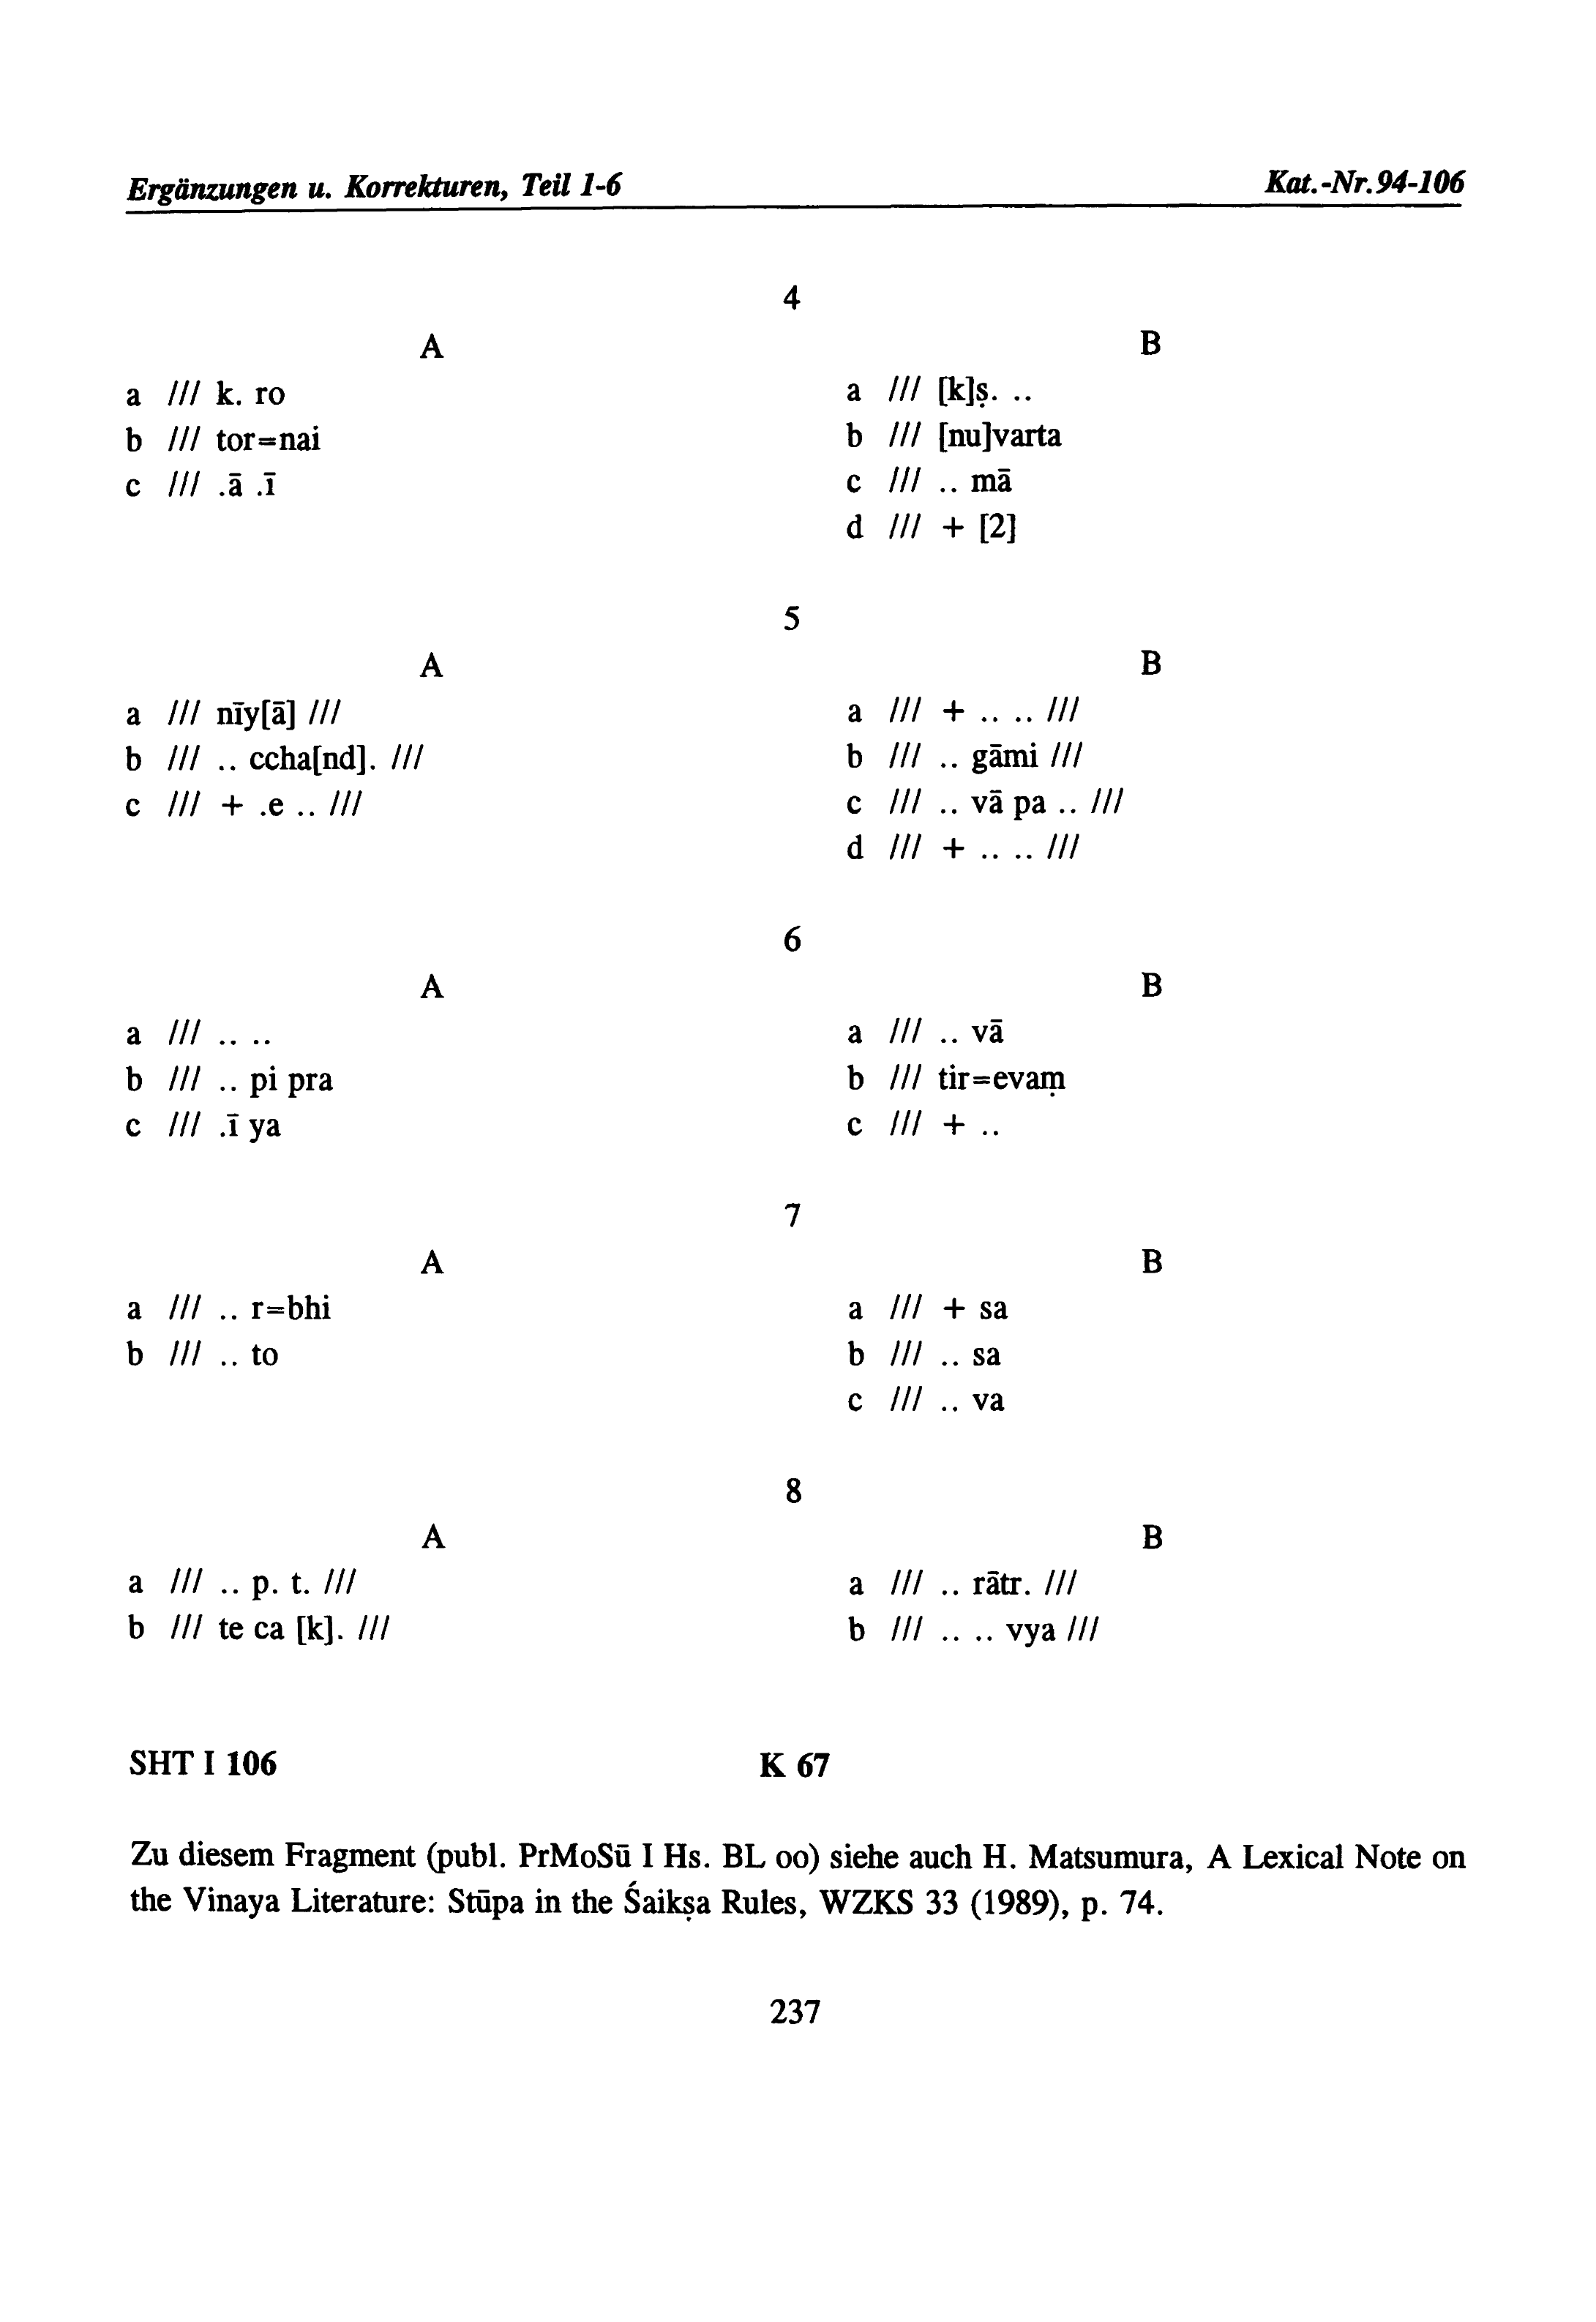 Ergänzungen u. Korrekturen, Teil 1-6 Kat.-Nr.94-106
4
A B
a /// k. ro a /// [k]ṣ. ..
b /// tor=nai b /// [nu]varta
c /// .ā .ī c /// .. mā
d /// + [2]
5
A B
a /// nīy[ā] /// a /// + .. .. ///
b /// .. ccha[nd]. /// b /// .. gāmi ///
c /// + .e .. /// c /// .. vā pa .. ///
d /// + .. .. ///
6
A B
a /// .. .. a /// .. vā
b /// .. pi pra b /// tir=evaṃ
c /// .ī ya c /// + ..
7
A B
a /// .. r=bhi a /// + sa
b /// .. to b /// .. sa
c /// .. va
8
A B
a /// .. p. t. /// a /// .. rātr. ///
b /// te ca [k]. /// b /// .. .. vya ///
SHT I 106 K 67
Zu diesem Fragment (publ. PrMoSū I Hs. BL oo) siehe auch H. Matsumura, A Lexical Note on
the Vinaya Literature: Stūpa in the Śaikṣa Rules, WZKS 33 (1989), p. 74.
237